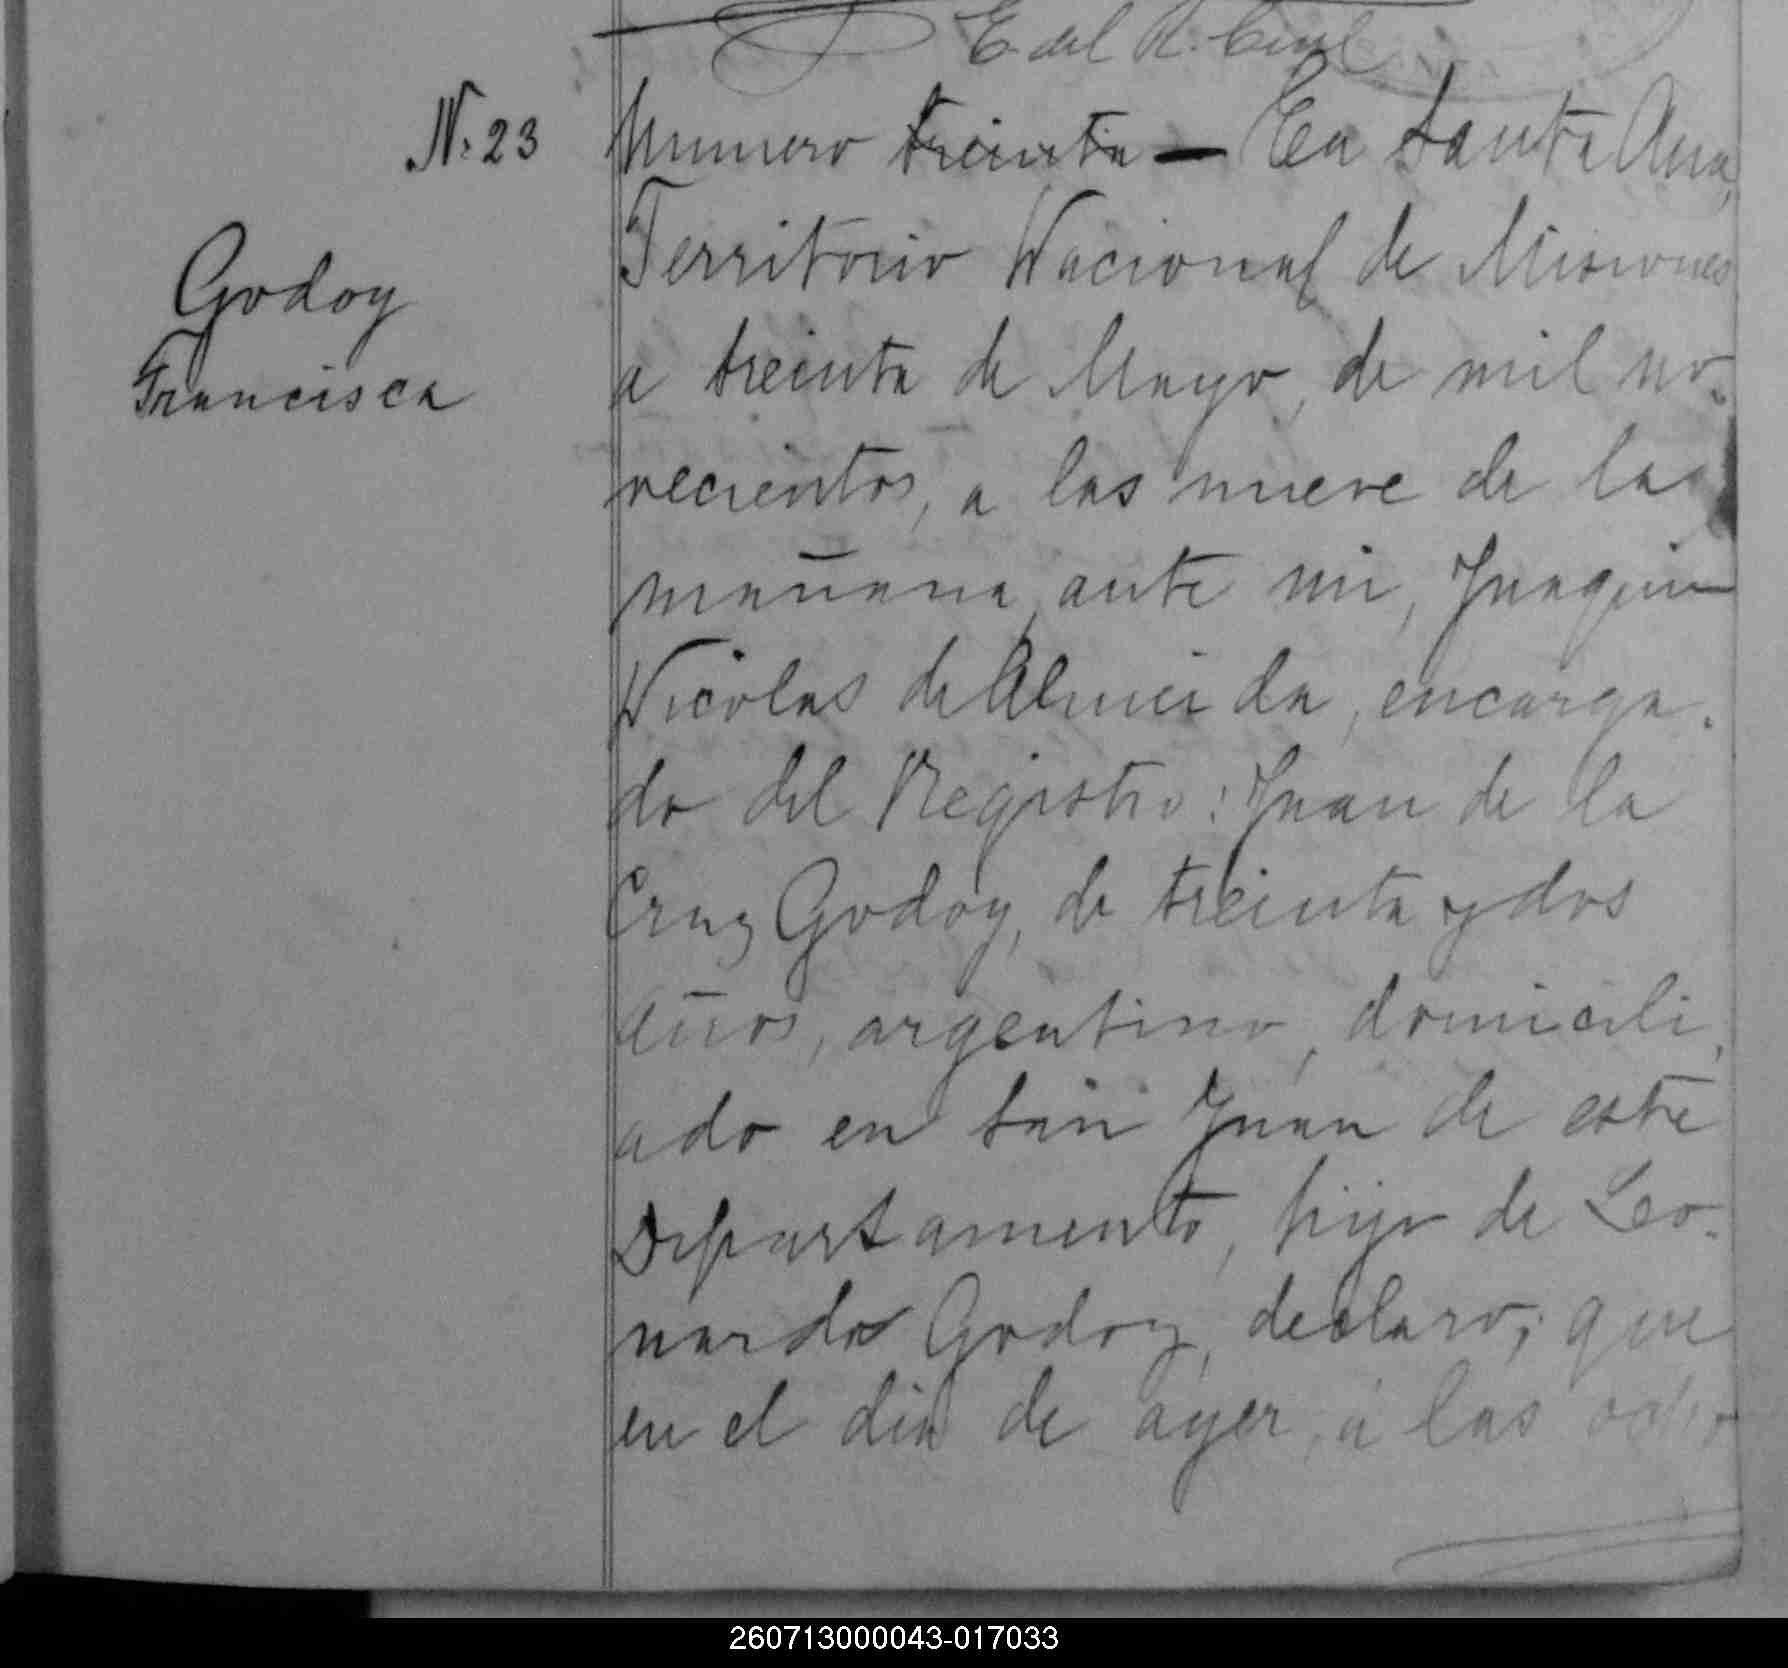 E. del R. Civil
N. 23
Numero treinta — En Santa Ana,
Godoy
Francisca
Territorio Nacional de Misiones
a treinta de Mayo, de mil no-
vecientos, a las nueve de la
mañana, ante mi, Juaquin
Nicolas de Almeida, encarga-
do del Registro: Juan de la
Cruz Godoy, de treinta y dos
años, argentino, domicili-
ado en San Juan de este
Departamento, hijo de Leo-
nardo Godoy, declaro; que
en el dia de ayer, á las ocho
260713000043-017033